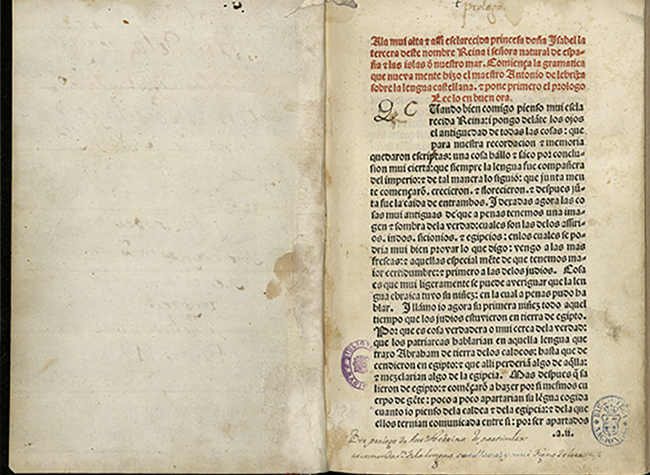 prologo.
Ala mui alta τ assi esclarecida princesa doña Isabel la
tercera deste nombre Reina i señora natural de espa-
ña τ las islas ð nuestro mar. Comiença la gramatica
que nueva mente hizo el maestro Antonio de lebrixa
sobre la lengua castellana. τ pone primero el prologo
Lee lo en buen ora.
Q C Uando bien comigo pienso mui escla
recida Reina: i pongo deláte los ojos
el antiguedad de todas las cosas: que
para nuestra recordacion τ memoria
quedaron escriptas: una cosa hállo τ sáco por conclu-
sion mui cierta: que siempre la lengua fue compañera
del imperio: τ de tal manera lo siguió: que junta men
te començarõ. crecieron. τ florecieron. τ despues jũ
ta fue la caida de entrambos. I dexadas agora las co
sas mui antiguas de que a penas tenemos una ima-
gen τ sombra dela verdad: cuales son las delos assiri-
os. indos. sicionios. τ egipcios: enlos cuales se po-
dria mui bien provar lo que digo: vengo a las mas
frescas: τ aquellas especial mẽte de que tenemos ma-
ior certidumbre: τ primero a las delos judios. Cosa
es que mui ligeramente se puede averiguar que la len
gua ebraica tuvo su niñez: en la cual a penas pudo ha
blar. I llámo io agora su primera niñez todo aquel
tiempo que los judios estuvieron en tierra de egipto.
Por que es cosa verdadera o mui cerca dela verdad:
que los patriarcas hablarian en aquella lengua que
traxo Abraham de tierra delos caldeos: hasta que de
cendieron en egipto: τ que alli perderiã algo de aq̃lla:
τ mezclarian algo dela egipcia. Mas despues q̃ sa
lieron de egipto: τ començarõ a hazer por si mesmos cu
erpo de gẽte: poco a poco apartarian su lẽgua cogida
cuanto io pienso dela caldea τ dela egipcia: τ dela que
ellos ternian comunicada entre si: por ser apartados
.a.ii.